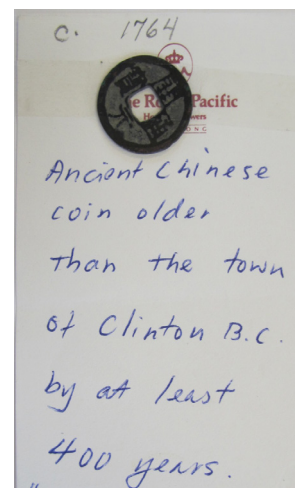 c. 1764
Pacific
Ancient Chinese
coin older
than the town
of Clinton B.C.
by at least
400 years.